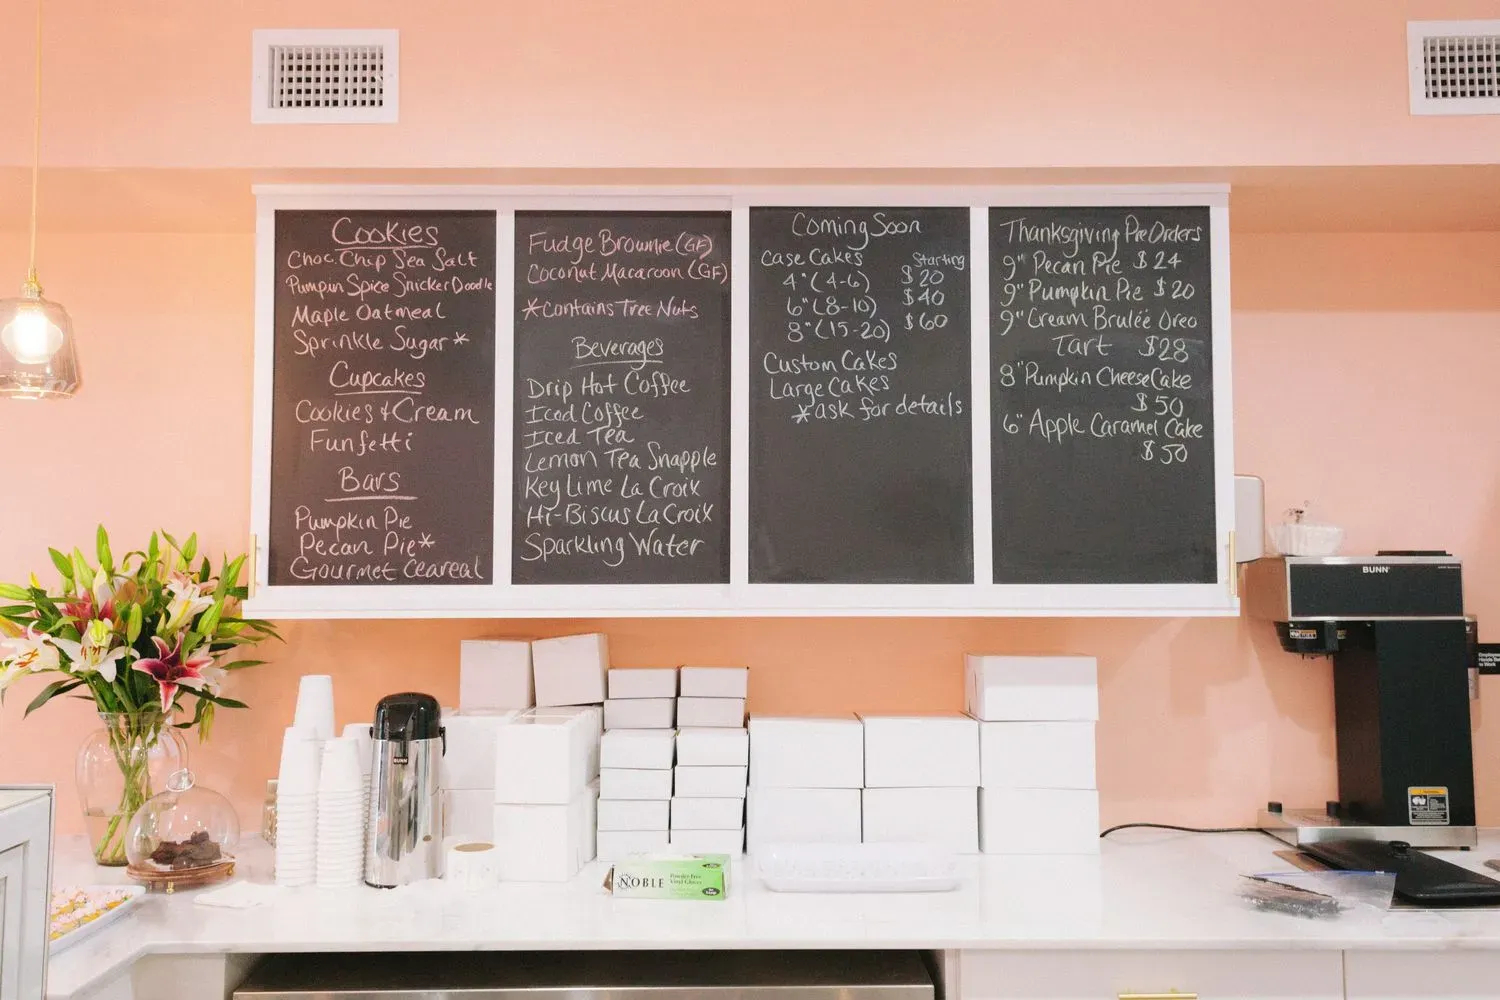 Cookies
Choc. Chip Sea Salt
Pumpin Spice Snicker Doodle
Maple Oatmeal
Sprinkle Sugar *
Cupcakes
Cookies + Cream
Funfetti
Bars
Pumpkin Pie
Pecan Pie*
Gourmet Ceareal
Fudge Brownie (GF)
Coconut Macaroon (GF)
*Contains Tree Nuts
Beverages
Drip Hot Coffee
Iced Coffee
Iced Tea
Lemon Tea Snapple
Key Lime La Croix
Hi-Biscus La Croix
Sparkling Water
Coming Soon
Case Cakes Starting
4" (4-6) $20
6" (8-10) $40
8" (15-20) $60
Custom Cakes
Large Cakes
*ask for details
Thanksgiving PreOrders
9" Pecan Pie $24
9" Pumpkin Pie $20
9" Cream Bruleé Oreo
Tart $28
8" Pumpkin CheeseCake
$50
6" Apple Caramel Cake
$50
BUNN
BUNN
NOBLE
Powder Free
Vinyl Gloves
Employees
Hands Be
to Work